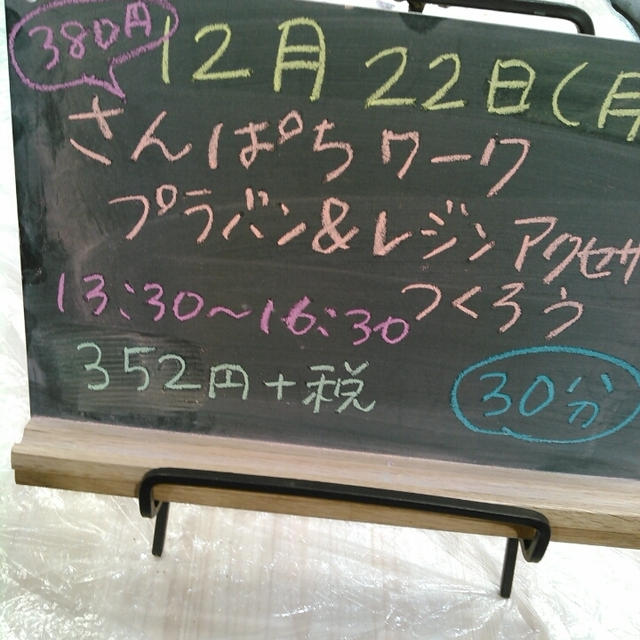 380円
12月22日(月
さんぱちワーク
プラバン&レジンアクセサ
つくろう
13:30〜16:30
352円+税
30分